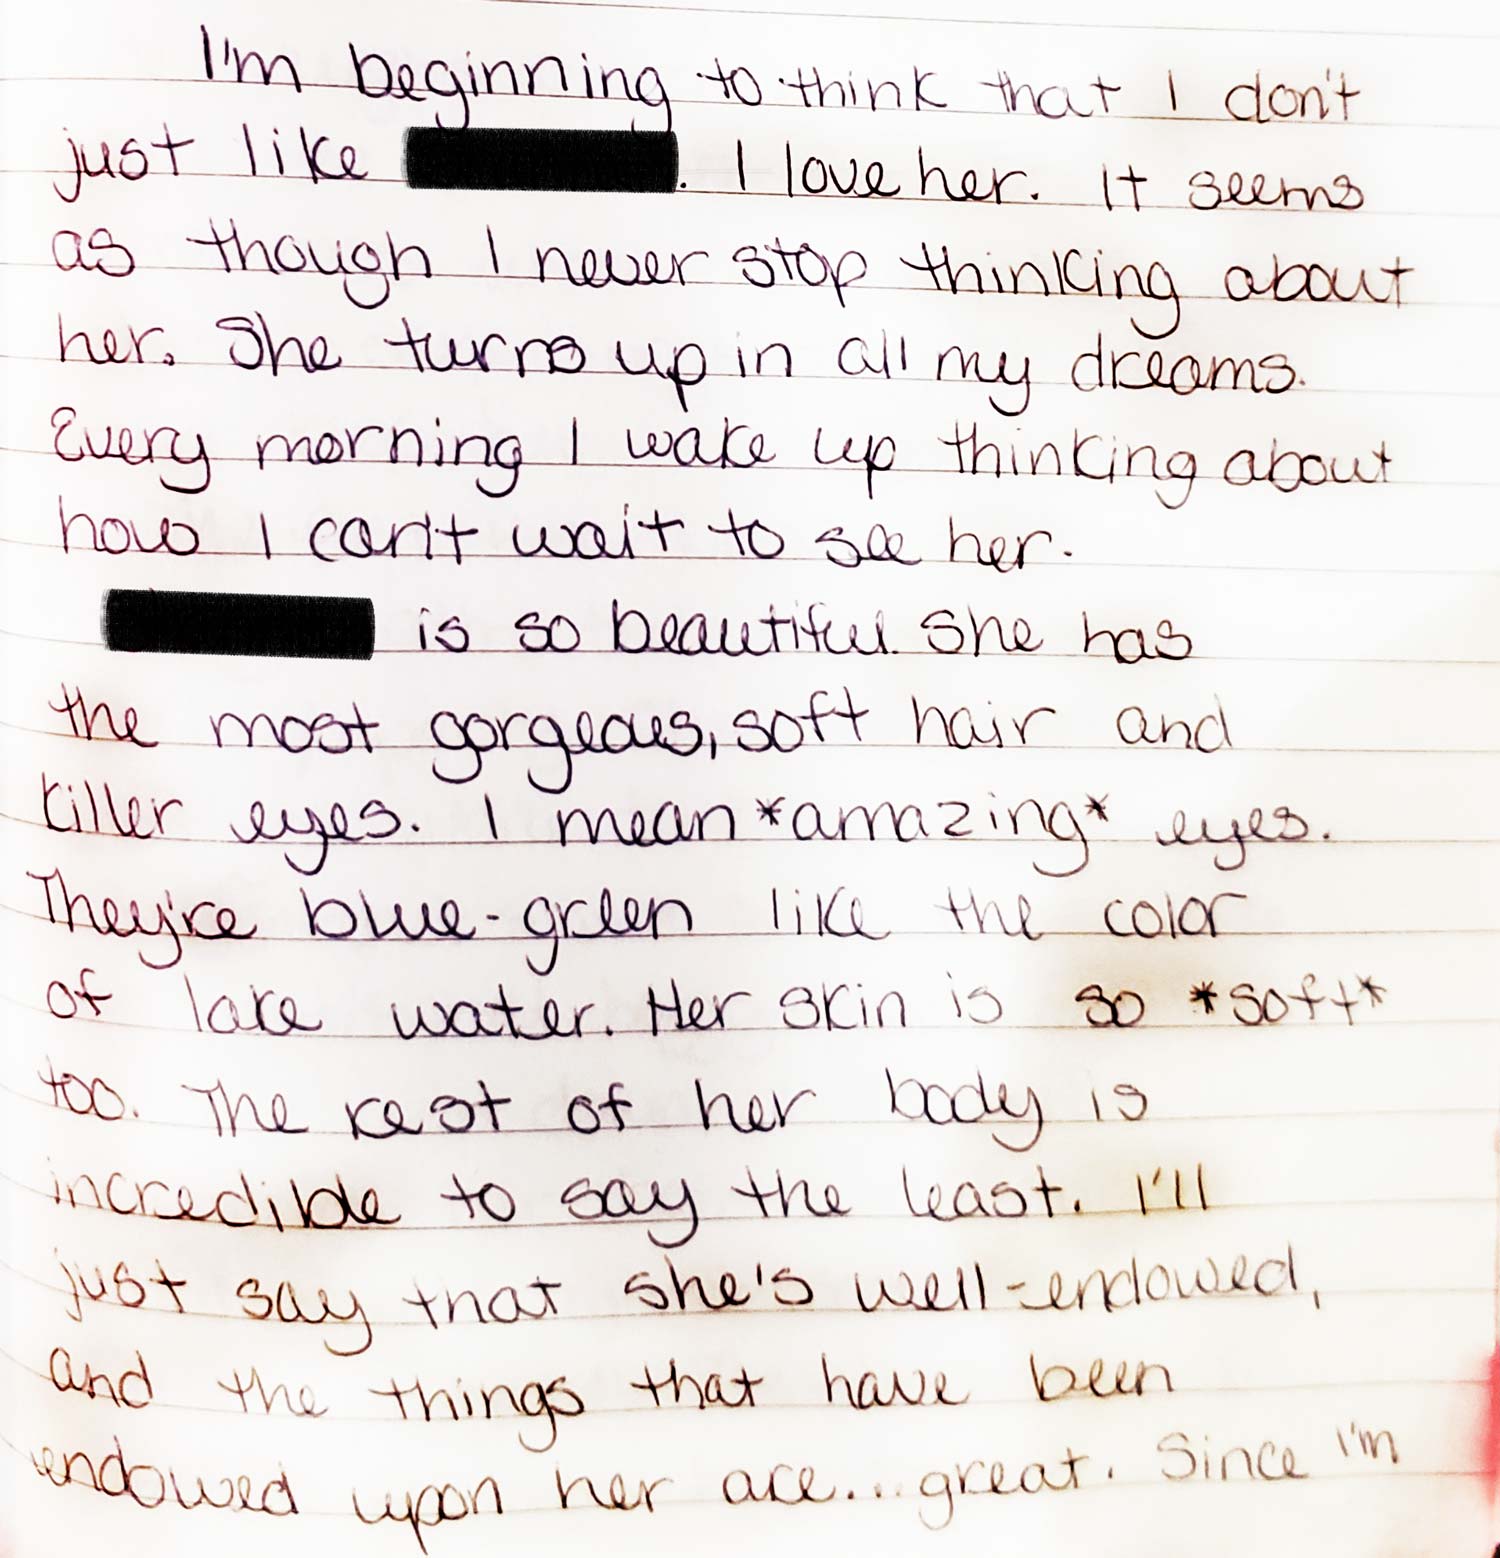 I'm beginning to think that I don't
just like . I love her. It seems
as though I never stop thinking about
her. She turns up in all my dreams.
Every morning I wake up thinking about
how I can't wait to see her.
is so beautiful. She has
the most gorgeous, soft hair and
killer eyes. I mean *amazing* eyes.
They're blue-green like the color
of lake water. Her skin is so *soft*
too. The rest of her body is
incredible to say the least. I'll
just say that she's well-endowed,
and the things that have been
endowed upon her are...great. Since I'm